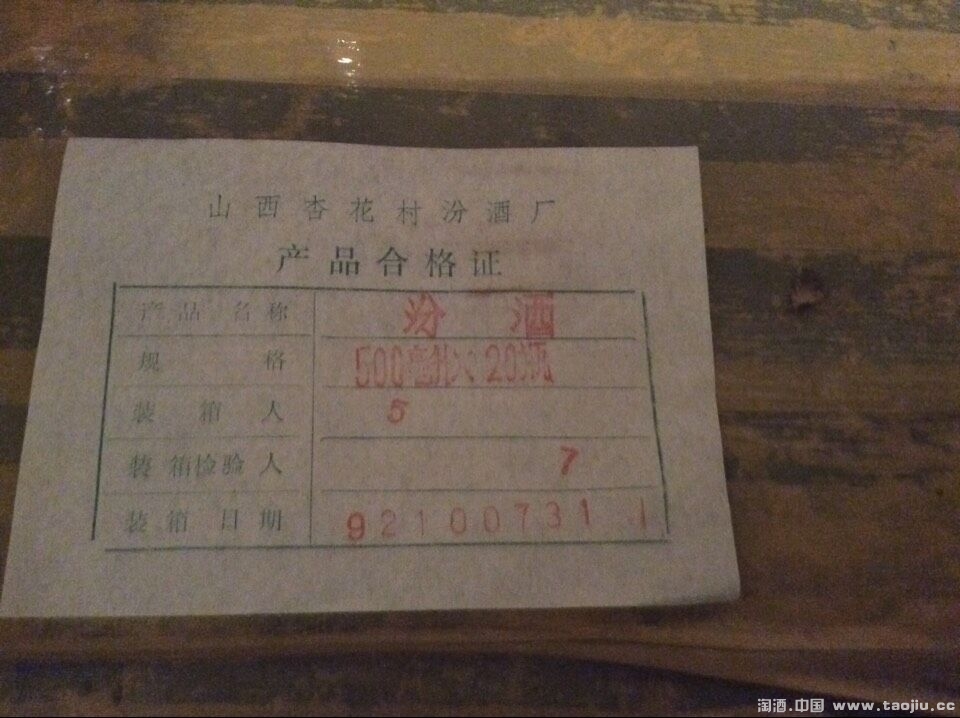 山西杏花村汾酒厂
产品合格证
产品名称 汾酒
规格 500毫升×20瓶
装箱人 5
装箱检验人 7
装箱日期 92100731 1
淘酒.中国 www.taojiu.cc